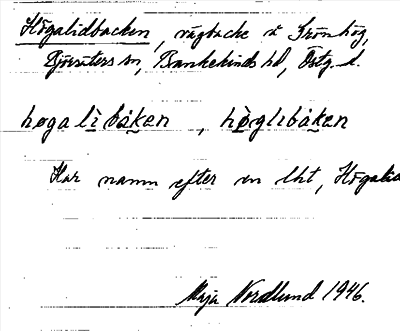 Högalidbacken, vägbacke å Grönhög,
Björsäters sn, Bankekinds hd, Östg. l.
høgalìbåkan , hø̀glibåkan
Har namn efter en lht, Högalid
Maja Nordlund 1946.